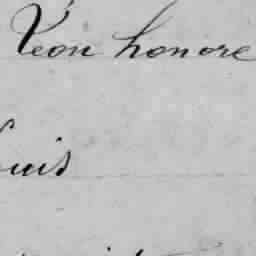 Léon honore
uis